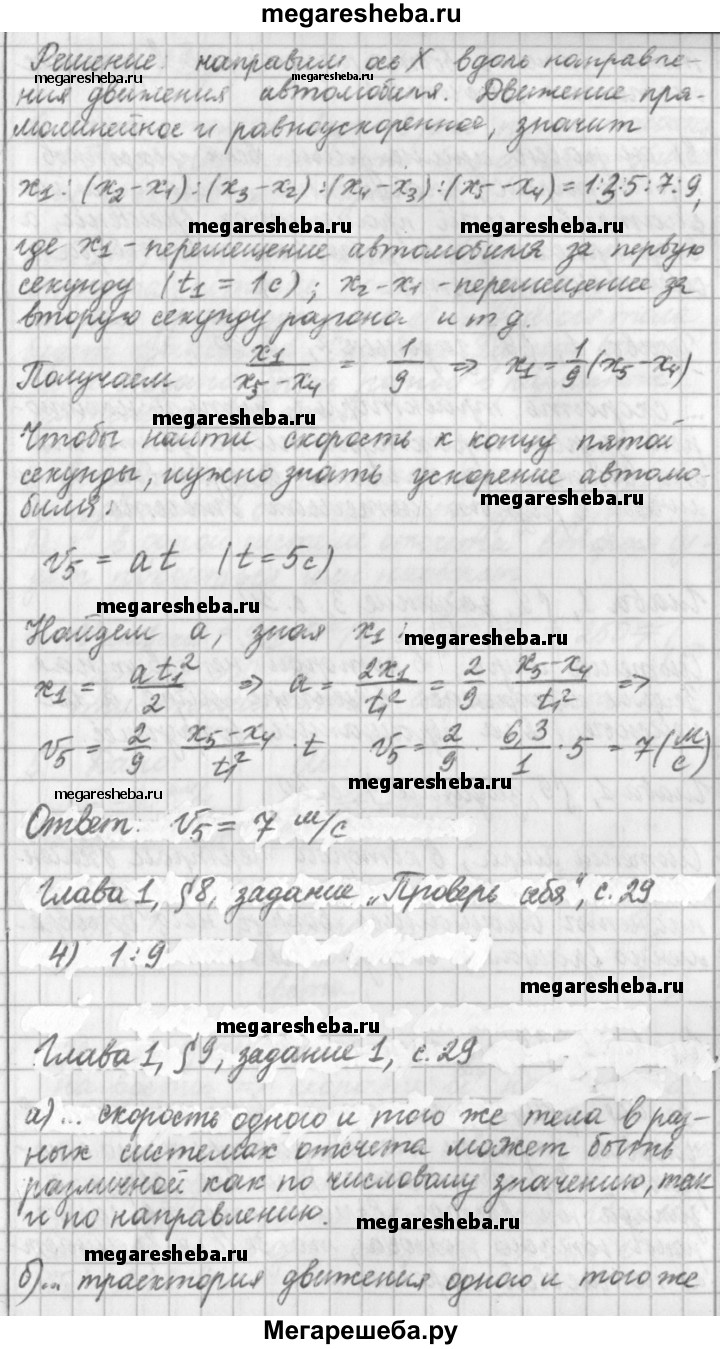 megaresheba.ru
Решение: направим ось X вдоль направле-
megaresheba.ru megaresheba.ru
ния движения автомобиля. Движение пря-
молинейное и равноускоренное, значит
x₁ : (x₂ - x₁) : (x₃ - x₂) : (x₄ - x₃) : (x₅ - x₄) = 1:3:5:7:9,
megaresheba.ru megaresheba.ru
где x₁ - перемещение автомобиля за первую
секунду (t₁ = 1с); x₂ - x₁ - перемещение за
вторую секунду разгона и т д.
Получаем x₁/(x₅ - x₄) = 1/9 => x₁ = 1/9 (x₅ - x₄)
megaresheba.ru
Чтобы найти скорость к концу пятой
секунды, нужно знать ускорение автомо-
megaresheba.ru
биля:
v₅ = at (t = 5с)
megaresheba.ru
Найдем a, зная x₁:
x₁ = at₁²/2 => a = 2x₁/t₁² = 2/9 (x₅ - x₄)/t₁² =>
v₅ = 2/9 (x₅ - x₄)/t₁² · t v₅ = 2/9 · 6,3/1 · 5 = 7 (м/с)
megaresheba.ru
megaresheba.ru
Ответ: v₅ = 7 м/с
Глава 1, §8, задание „Проверь себя", с. 29
4) 1:9
megaresheba.ru
megaresheba.ru
Глава 1, §9, задание 1, с. 29
а)... скорость одного и того же тела в раз-
ных системах отсчета может быть
различной как по числовому значению, так
и по направлению.
megaresheba.ru
megaresheba.ru
б)... траектория движения одного и того же
Мегарешеба.ру